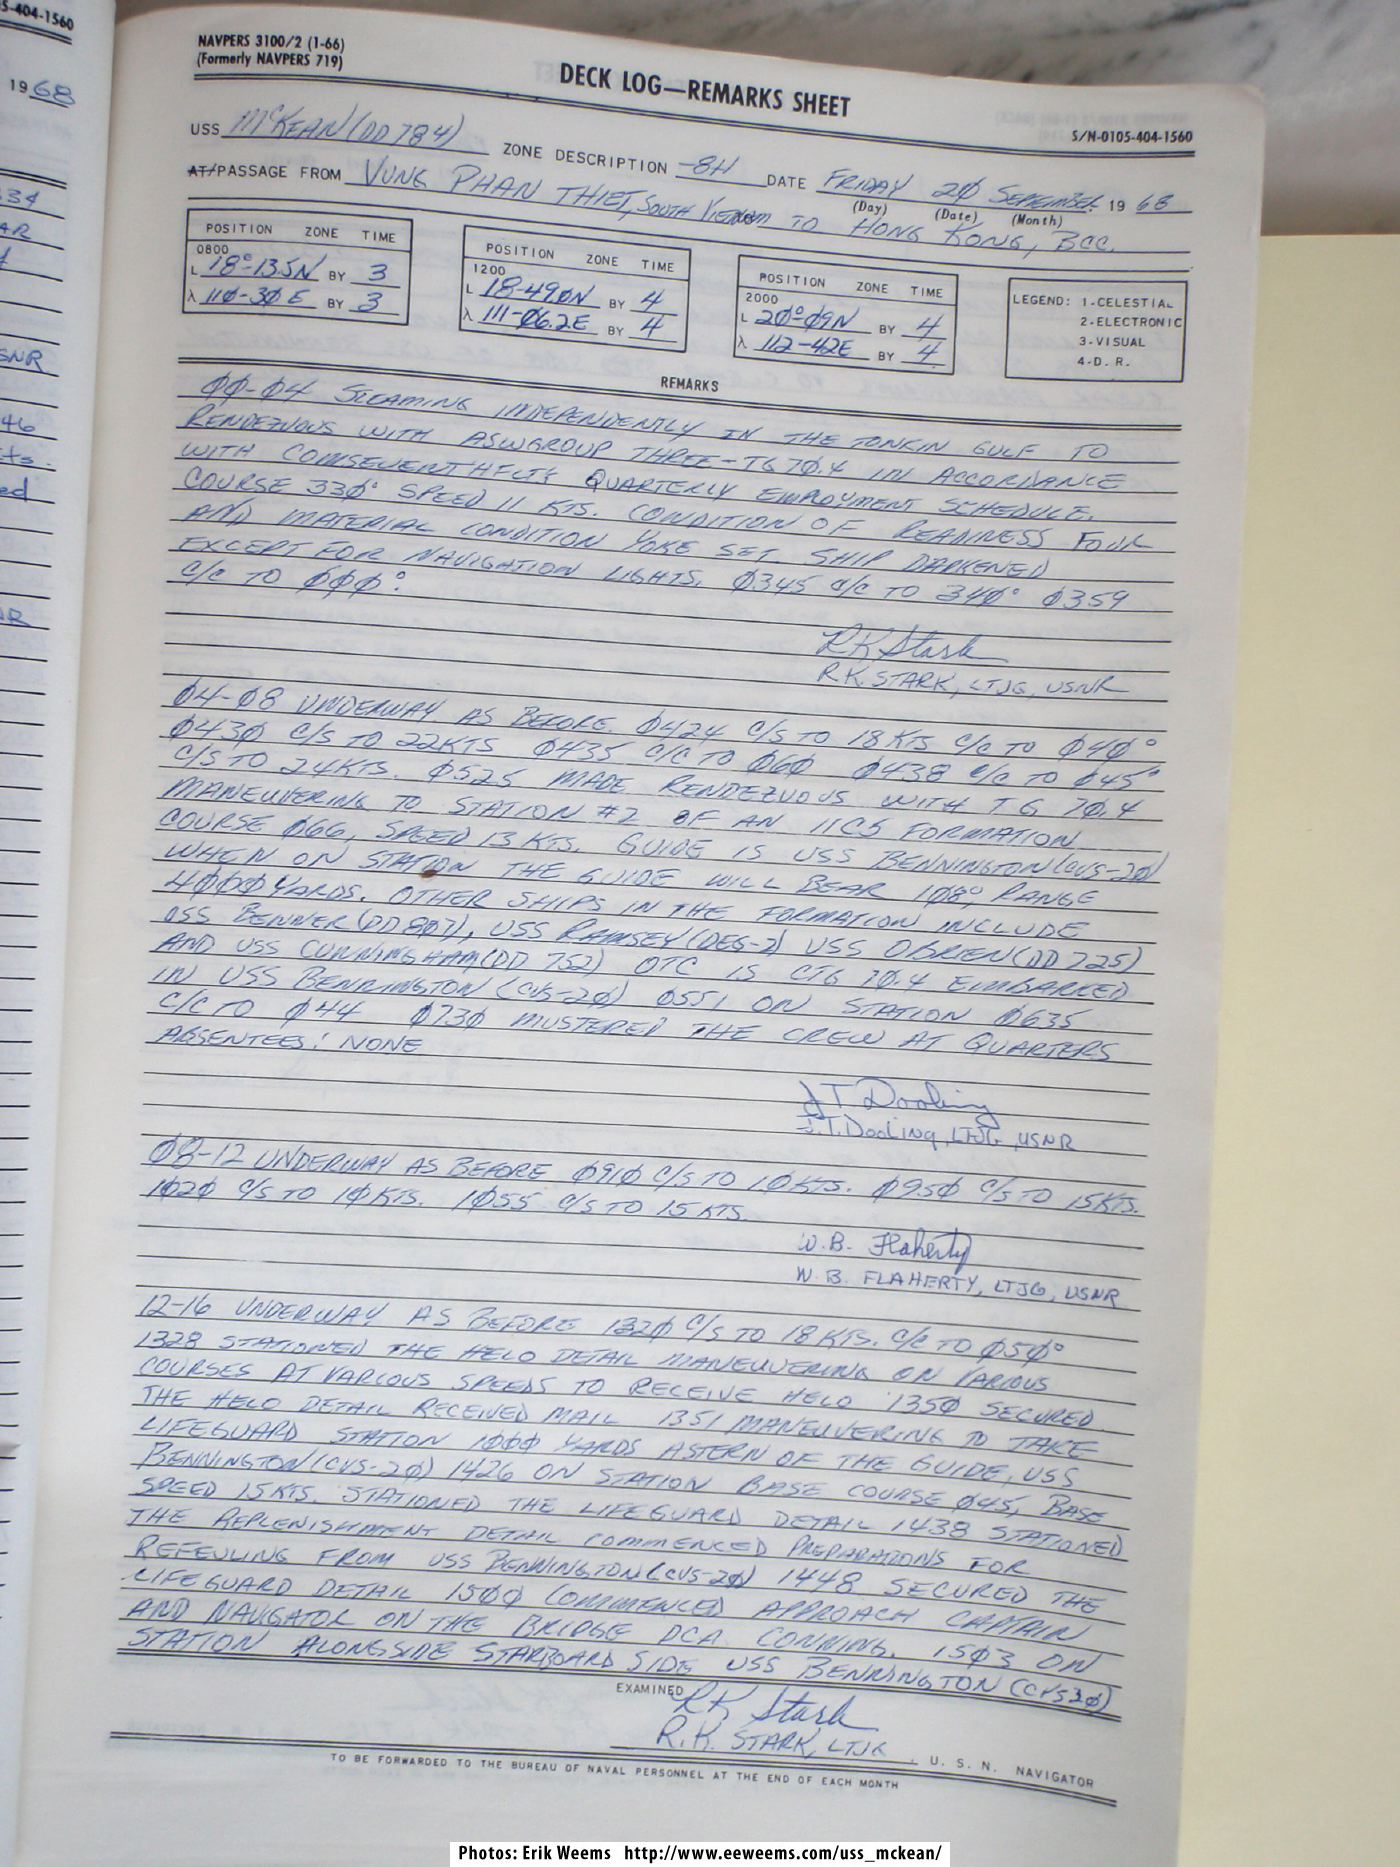 5-404-1560
1968
NAVPERS 3100/2 (1-66)
(Formerly NAVPERS 719)
DECK LOG—REMARKS SHEET
S/N-0105-404-1560
USS McKEAN (DD 784) ZONE DESCRIPTION -8H DATE FRIDAY 2Ø SEPTEMBER 1968
(Day) (Date) (Month)
AT/PASSAGE FROM VUNG PHAN THIET, SOUTH VIETNAM TO HONG KONG, BCC.
POSITION ZONE TIME
0800
L 18°-13.5N BY 3
λ 11Ø-3Ø E BY 3
POSITION ZONE TIME
1200
L 18-49.ØN BY 4
λ 111-Ø6.2E BY 4
POSITION ZONE TIME
2000
L 2Ø°-Ø9N BY 4
λ 112-42E BY 4
LEGEND: 1-CELESTIAL
2-ELECTRONIC
3-VISUAL
4-D. R.
REMARKS
ØØ-Ø4 STEAMING INDEPENDENTLY IN THE TONKIN GULF TO
RENDEZVOUS WITH ASWGROUP THREE-TG 7Ø.4 IN ACCORDANCE
WITH COMSEVENTHFLT QUARTERLY EMPLOYMENT SCHEDULE.
COURSE 33Ø° SPEED 11 KTS. CONDITION OF READINESS FOUR
AND MATERIAL CONDITION YOKE SET. SHIP DARKENED
EXCEPT FOR NAVIGATION LIGHTS. Ø345 C/C TO 34Ø° Ø359
C/C TO ØØØ°.
RK Stark
R.K. STARK, LTJG, USNR
Ø4-Ø8 UNDERWAY AS BEFORE. Ø424 C/S TO 18 KTS C/C TO Ø4Ø°
Ø43Ø C/S TO 22KTS Ø435 C/C TO Ø6Ø Ø438 C/C TO Ø45°
C/S TO 24KTS. Ø525 MADE RENDEZVOUS WITH TG 7Ø.4
MANEUVERING TO STATION #2 OF AN 11C5 FORMATION
COURSE Ø66, SPEED 13 KTS. GUIDE IS USS BENNINGTON (CVS-2Ø)
WHEN ON STATION THE GUIDE WILL BEAR 1Ø8°, RANGE
4ØØØ YARDS. OTHER SHIPS IN THE FORMATION INCLUDE
USS BENNER (DD 8Ø7), USS RAMSEY (DEG-2) USS OBRIEN (DD 725)
AND USS CUNNINGHAM (DD 752) OTC IS CTG 7Ø.4 EMBARKED
IN USS BENNINGTON (CVS-2Ø) Ø551 ON STATION Ø635
C/C TO Ø44 Ø73Ø MUSTERED THE CREW AT QUARTERS
ABSENTEES: NONE
JT Dooling
J.T. Dooling, LTJG, USNR
Ø8-12 UNDERWAY AS BEFORE Ø91Ø C/S TO 1ØKTS. Ø95Ø C/S TO 15KTS.
1Ø2Ø C/S TO 1ØKTS. 1Ø55 C/S TO 15 KTS.
W.B. Flaherty
W.B. FLAHERTY, LTJG, USNR
12-16 UNDERWAY AS BEFORE 132Ø C/S TO 18 KTS. C/C TO Ø5Ø°
1328 STATIONED THE HELO DETAIL MANEUVERING ON VARIOUS
COURSES AT VARIOUS SPEEDS TO RECEIVE HELO 135Ø SECURED
THE HELO DETAIL RECEIVED MAIL 1351 MANEUVERING TO TAKE
LIFEGUARD STATION 1ØØØ YARDS ASTERN OF THE GUIDE, USS
BENNINGTON (CVS-2Ø) 1426 ON STATION BASE COURSE Ø45, BASE
SPEED 15KTS. STATIONED THE LIFEGUARD DETAIL 1438 STATIONED
THE REPLENISHMENT DETAIL COMMENCED PREPARATIONS FOR
REFEULING FROM USS BENNINGTON (CVS-2Ø) 1448 SECURED THE
LIFEGUARD DETAIL 15ØØ COMMENCED APPROACH CAPTAIN
AND NAVIGATOR ON THE BRIDGE DCA CONNING. 15Ø3 ON
STATION ALONGSIDE STARBOARD SIDE USS BENNINGTON (CVS2Ø)
EXAMINED
RK Stark
R.K. STARK, LTJG, U. S. N. NAVIGATOR
TO BE FORWARDED TO THE BUREAU OF NAVAL PERSONNEL AT THE END OF EACH MONTH
Photos: Erik Weems http://www.eeweems.com/uss_mckean/